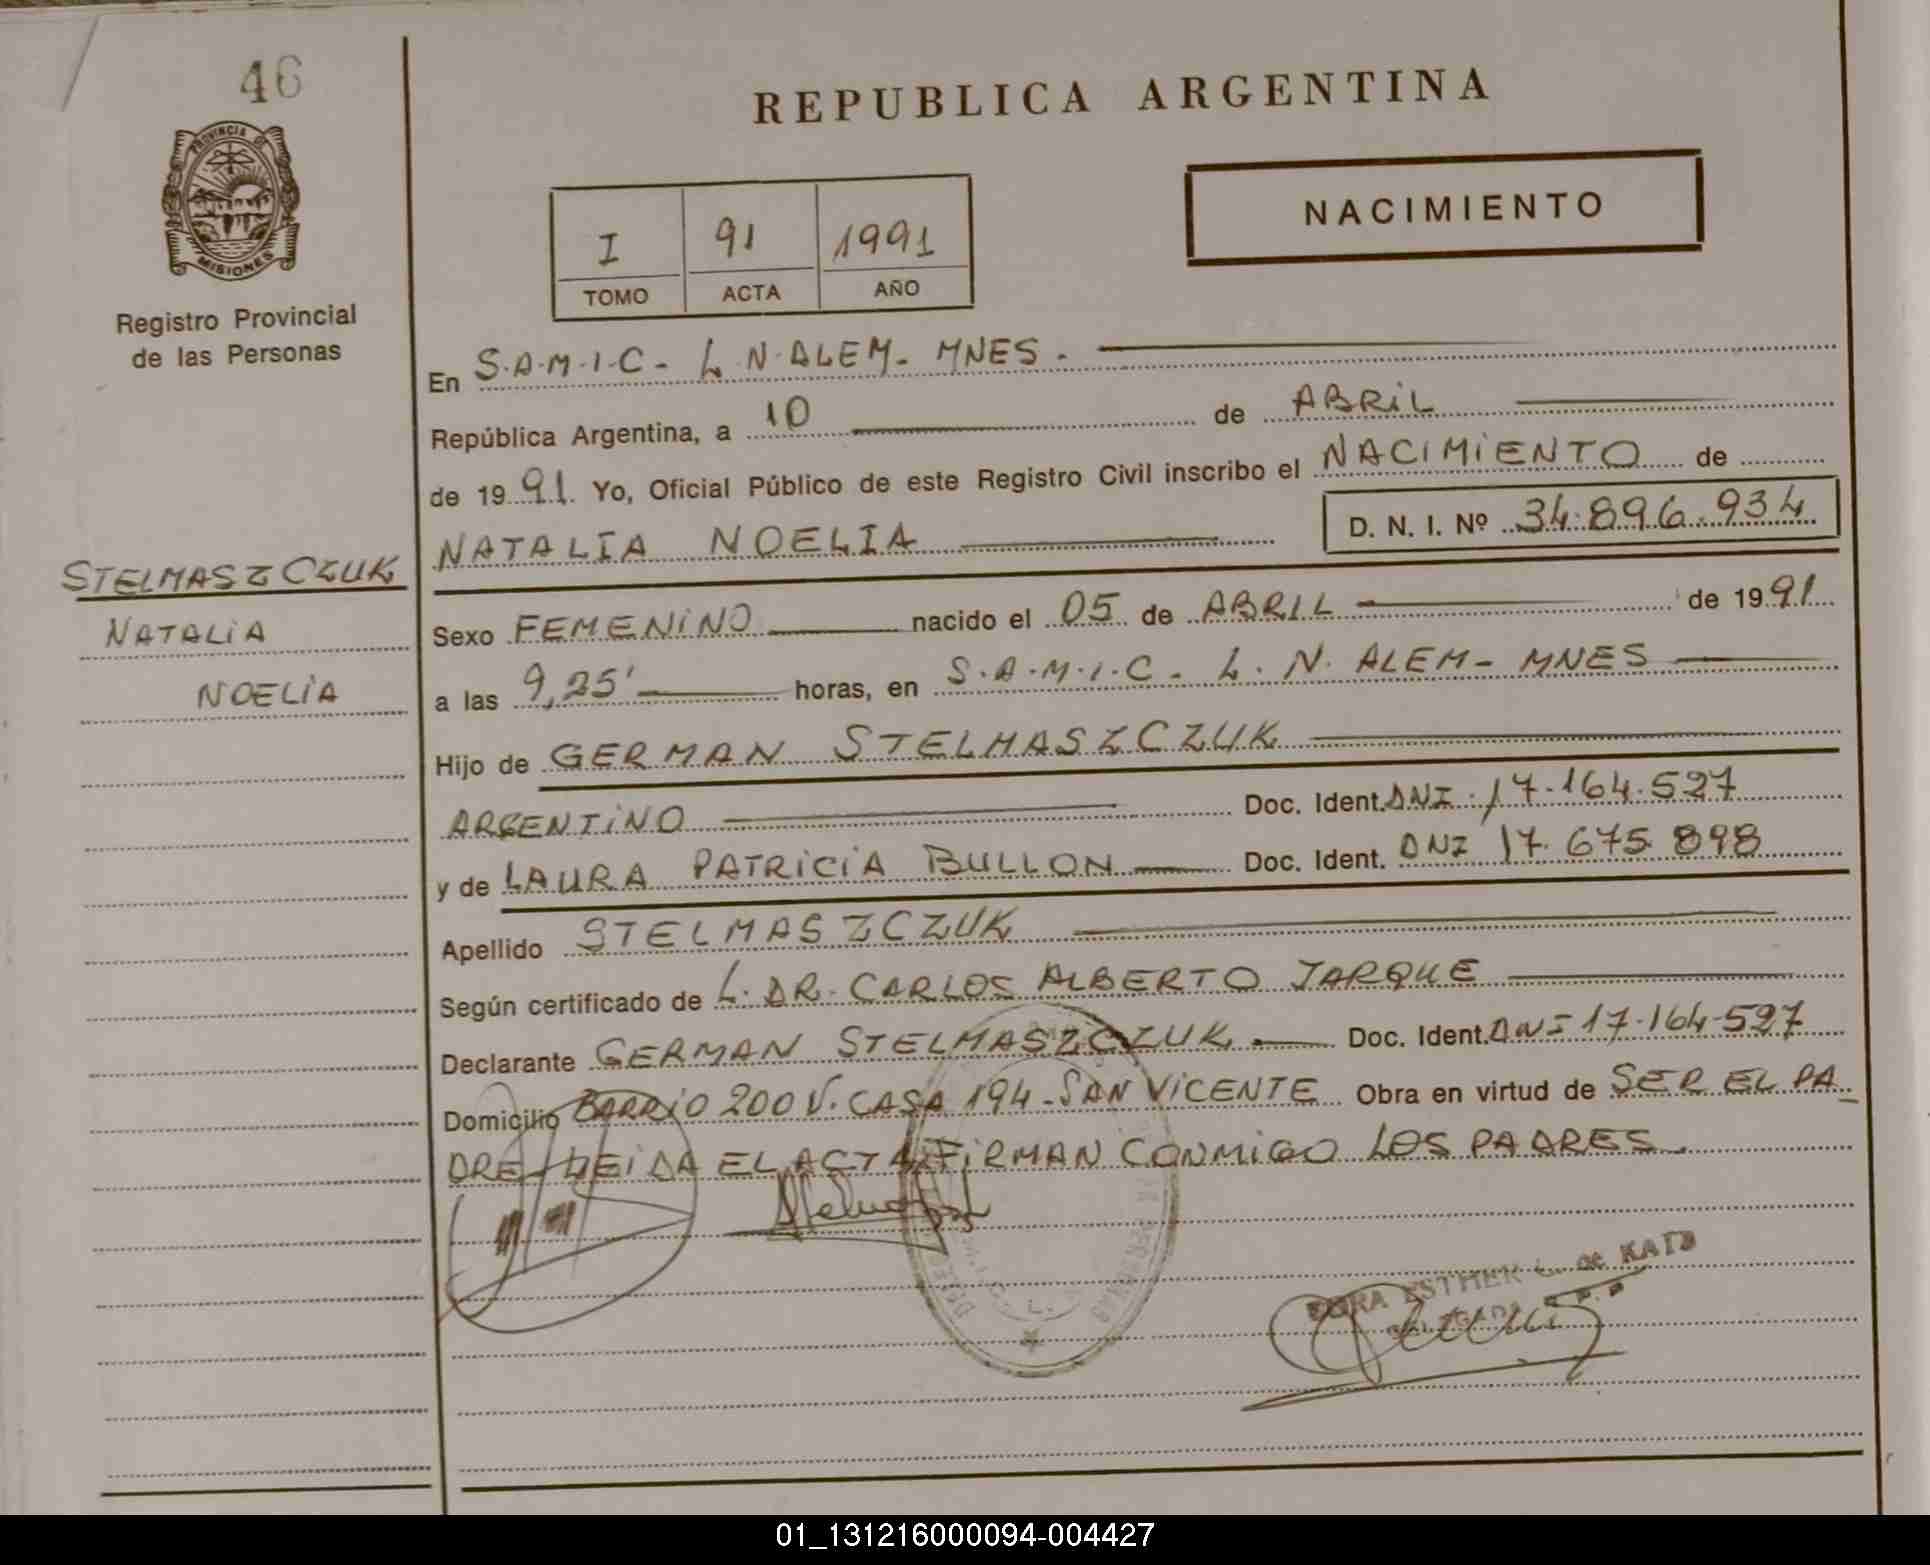 46
PROVINCIA DE
MISIONES
Registro Provincial
de las Personas
STELMASZCZUK
NATALIA
NOELIA
REPUBLICA ARGENTINA
I 91 1991
TOMO ACTA AÑO
NACIMIENTO
En S.A.M.I.C - L.N.ALEM - MNES.
República Argentina, a 10 de ABRIL
de 1991. Yo, Oficial Público de este Registro Civil inscribo el NACIMIENTO de
NATALIA NOELIA D. N. I. Nº 34.896.934
Sexo FEMENINO nacido el 05 de ABRIL de 1991
a las 9,25' horas, en S.A.M.I.C - L. N. ALEM - MNES
Hijo de GERMAN STELMASZCZUK
ARGENTINO Doc. Ident. DNI. 17.164.527
y de LAURA PATRICIA BULLON Doc. Ident. DNI 17.675.898
Apellido STELMASZCZUK
Según certificado de L. DR. CARLOS ALBERTO JARQUE
Declarante GERMAN STELMASZCZUK Doc. Ident. DNI 17.164.527
Domicilio BARRIO 200 V. CASA 194 - SAN VICENTE Obra en virtud de SER EL PA_
DRE - LEIDA EL ACTA FIRMAN CONMIGO LOS PADRES.
ESTHER
01_131216000094-004427